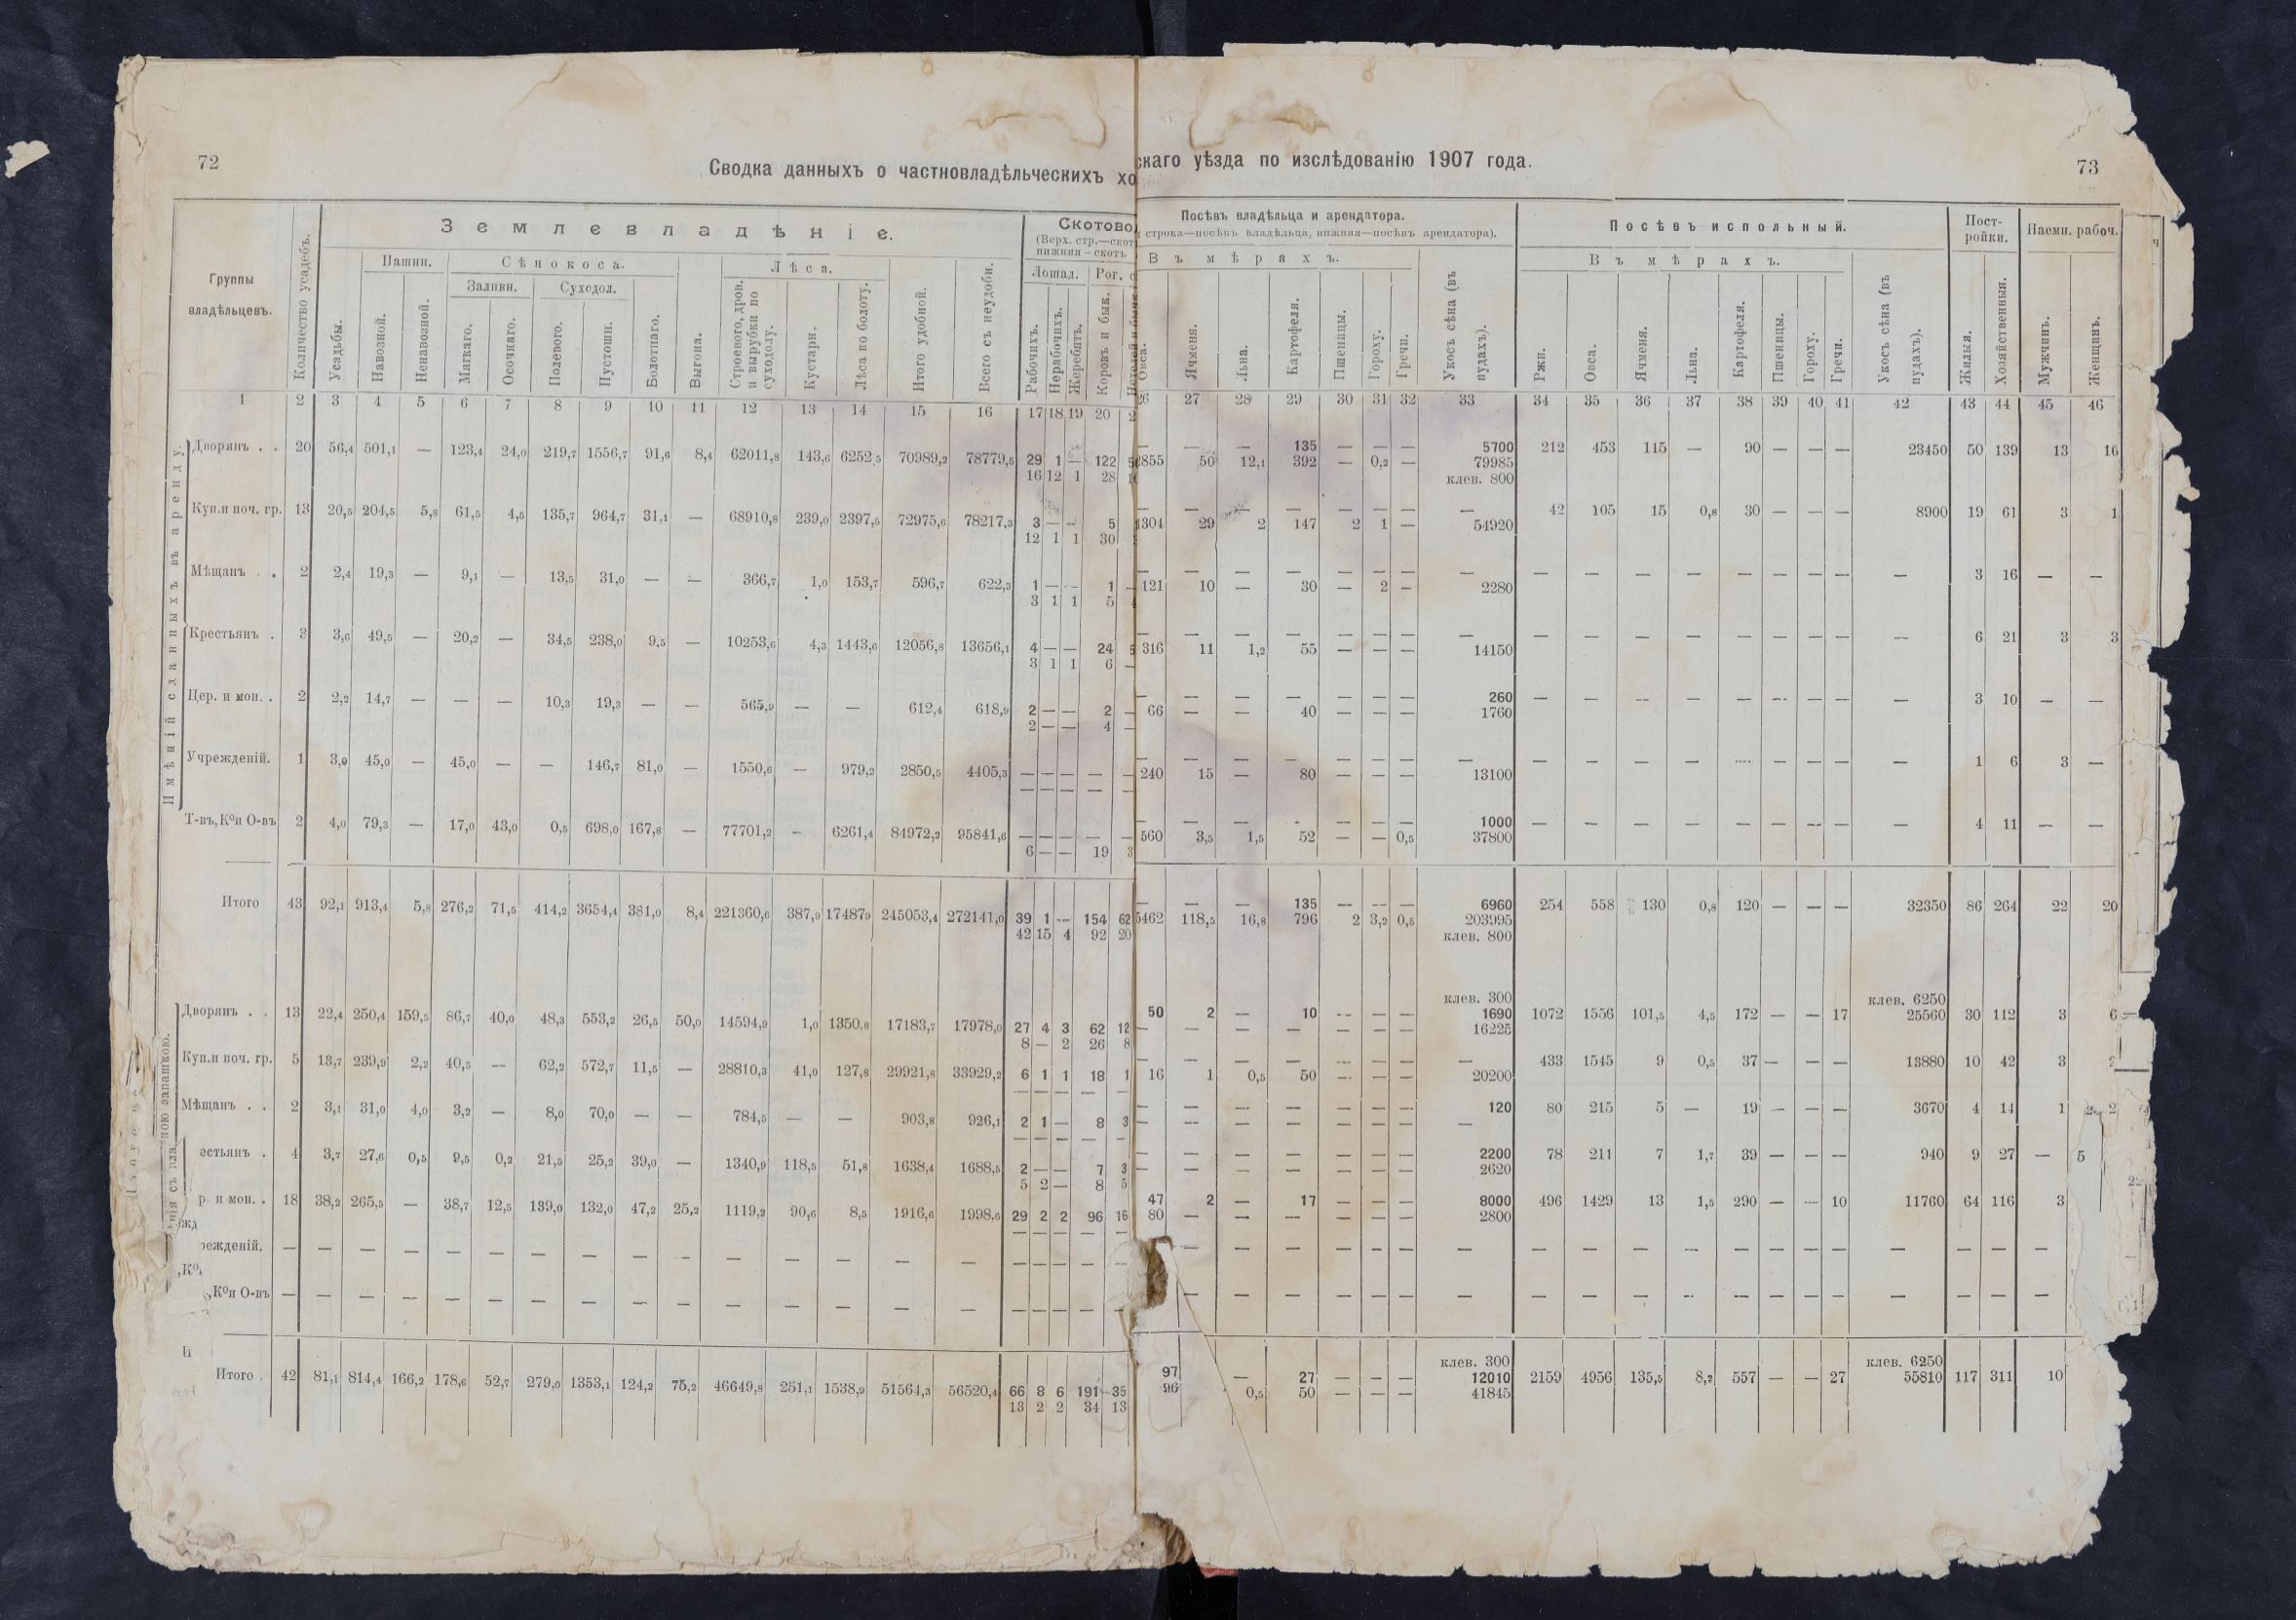 72
Сводка данныхъ о частновладѣльческихъ хо
скаго уѣзда по изслѣдованію 1907 года.
73
Группы владѣльцевъ.
Количество усадебъ.
Землевладѣніе.
Скотово
(Верх. стр.—скот
нижняя—скотъ
Посѣвъ владѣльца и арендатора.
строка—посѣвъ владѣльца, нижняя—посѣвъ арендатора).
Посѣвъ испольный.
Пост-ройки.
Наемн. рабоч.
Усадьбы.
Пашни.
Навозной.
Ненавозной.
Сѣнокоса.
Заливн.
Мягкаго.
Осочнаго.
Суходол.
Полевого.
Пустошн.
Болотнаго.
Выгона.
Лѣса.
Строевого, дров. и вырубки по суходолу.
Кустарн.
Лѣса по болоту.
Итого удобной.
Всего съ неудобн.
Лошад.
Рабочихъ.
Нерабочихъ.
Жеребятъ.
Рог. с
Коровъ и бык.
Въ мѣрахъ.
Овса.
Ячменя.
Льна.
Картофеля.
Пшеницы.
Гороху.
Гречи.
Укосъ сѣна (въ пудахъ).
Въ мѣрахъ.
Ржи.
Овса.
Ячменя.
Льна.
Картофеля.
Пшеницы.
Гороху.
Гречи.
Укосъ сѣна (въ пудахъ).
Жилыя.
Хозяйственныя.
Мужчинъ.
Женщинъ.
1 2 3 4 5 6 7 8 9 10 11 12 13 14 15 16 17 18 19 20 2
26 27 28 29 30 31 32 33 34 35 36 37 38 39 40 41 42 43 44 45 46
Имѣній сданныхъ въ аренду.
Дворянъ . . 20 56,4 501,1 — 123,4 24,0 219,7 1556,7 91,6 8,4 62011,8 143,6 6252,5 70989,2 78779,5 29 1 — 122
16 12 1 28
— — — 135 — — — 5700 212 453 115 — 90 — — — 23450 50 139 13 16
855 50 12,1 392 — 0,2 — 79985
клев. 800
Куп.и поч. гр. 13 20,5 204,5 5,8 61,5 4,5 135,7 964,7 31,1 — 68910,8 239,0 2397,5 72975,6 78217,3 3 — — 5
12 1 1 30
— — — — — — — — 42 105 15 0,8 30 — — — 8900 19 61 3 1
1304 29 2 147 2 1 — 54920
Мѣщанъ . . 2 2,4 19,3 — 9,1 — 13,5 31,0 — — 366,7 1,0 153,7 596,7 622,3 1 — — 1 —
3 1 1 5
— — — — — — — — — — — — — — — — — 3 16 — —
121 10 — 30 — 2 — 2280
Крестьянъ . 3 3,6 49,5 — 20,2 — 34,5 238,0 9,5 — 10253,6 4,3 1443,6 12056,8 13656,1 4 — — 24 5
3 1 1 6 —
— — — — — — — — — — — — — — — — — 6 21 3 3
316 11 1,2 55 — — — 14150
Цер. и мон. . 2 2,2 14,7 — — — 10,3 19,3 — — 565,9 — — 612,4 618,9 2 — — 2 —
2 — — 4
— — — — — — — 260 — — — — — — — — — 3 10 — —
66 — — 40 — — — 1760
Учрежденій. 1 3,0 45,0 — 45,0 — — 146,7 81,0 — 1550,6 — 979,2 2850,5 4405,3 — — — — —
— — — —
— — — — — — — — — — — — — — — — — 1 6 3 —
240 15 — 80 — — — 13100
Т-въ,Кои О-въ 2 4,0 79,3 — 17,0 43,0 0,5 698,0 167,8 — 77701,2 — 6261,4 84972,2 95841,6 — — — — —
6 — — 19 3
— — — — — — — 1000 — — — — — — — — — 4 11 — —
560 3,5 1,5 52 — — 0,5 37800
Итого 43 92,1 913,4 5,8 276,2 71,5 414,2 3654,4 381,0 8,4 221360,6 387,9 17487,9 245053,4 272141,0 39 1 — 154 62
42 15 4 92 20
— — — 135 — — — 6960 254 558 130 0,8 120 — — — 32350 86 264 22 20
5462 118,5 16,8 796 2 3,2 0,5 203995
клев. 800
ною запашкою.
клев. 300 клев. 6250
Дворянъ . . 13 22,4 250,4 159,5 86,7 40,0 48,3 553,2 26,5 50,0 14594,9 1,0 1350,8 17183,7 17978,0 27 4 3 62 12
8 — 2 26 8
50 2 — 10 — — — 1690 1072 1556 101,5 4,5 172 — — 17 25560 30 112 3 6
— — — — — — — 16225
Куп.и поч. гр. 5 13,7 239,9 2,2 40,5 — 62,2 572,7 11,5 — 28810,3 41,0 127,8 29921,8 33929,2 6 1 1 18 1
— — — — —
— — — — — — — — 433 1545 9 0,5 37 — — — 13880 10 42 3
16 1 0,5 50 — — — 20200
Мѣщанъ . . 2 3,1 31,0 4,0 3,2 — 8,0 70,0 — — 784,5 — — 903,8 926,1 2 1 — 8 3
— — — — —
— — — — — — — 120 80 215 5 — 19 — — — 3670 4 14 1 2
— — — — — — — —
естьянъ . 4 3,7 27,6 0,5 9,5 0,2 21,5 25,2 39,0 — 1340,9 118,5 51,8 1638,4 1688,5 2 — — 7 3
5 2 — 8 5
— — — — — — — 2200 78 211 7 1,7 39 — — — 940 9 27 — 5
— — — — — — — 2620
р. и мон. . 18 38,2 265,5 — 38,7 12,5 139,0 132,0 47,2 25,2 1119,2 90,6 8,5 1916,6 1998,6 29 2 2 96 16
— — — — —
47 2 — 17 — — — 8000 496 1429 13 1,5 290 — — 10 11760 64 116 3
80 — — — — — — 2800
режденій. — — — — — — — — — — — — — — — — — — — —
— — — — — — — — — — — — — — — — — — —
,Кои О-въ — — — — — — — — — — — — — — — — — — — —
— — — — — — — — — — — — — — — — — — —
клев. 300 клев. 6250
Итого . 42 81,1 814,4 166,2 178,6 52,7 279,0 1353,1 124,2 75,2 46649,8 251,1 1538,9 51564,3 56520,4 66 8 6 191 35
13 2 2 34 13
97 — 27 — — — 12010 2159 4956 135,5 8,2 557 — — 27 55810 117 311 10
96 0,5 50 — — — 41845